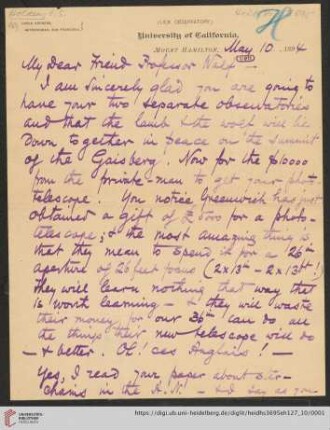 (LICK OBSERVATORY)
University of California,
MOUNT HAMILTON, May 10 1894
My Dear Friend Professor Wolf —
I am sincerely glad you are going to
have your two separate observatories
and that the lamb & the wolf will lie
down together in peace on the summit
of the Gaisberg. Now for the $10000
from the private-man to get your photo-
telescope. You notice Greenwich has just
obtained a gift of £5000 for a photo-
telescope, & the most amazing thing is
that they mean to spend it for a 26in
aperture of 26 feet focus (2x13 – 2x13!)
they will learn nothing that way that
is worth learning — & they will waste
their money, for our 36in can do all
the things their new telescope will do
— & better. O! ces Anglais! —
Yes, I read your paper about star-
chains in the A.N. — and say as you
UNIVERSITÄTS-
BIBLIOTHEK
HEIDELBERG
https://digi.ub.uni-heidelberg.de/diglit/heidhs3695eh127_10/0001